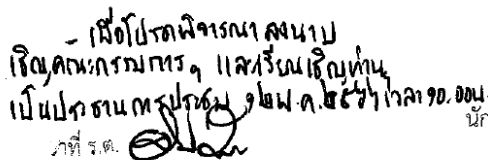 เพื่อโปรดพิจารณาลงนาม
เชิญคณะกรรมการฯ และเรียนเชิญท่าน
เป็นประธานการประชุม พ.ค. เวลา ๑๐.๐๐น.
นัก
ว่าที่ ร.ต.